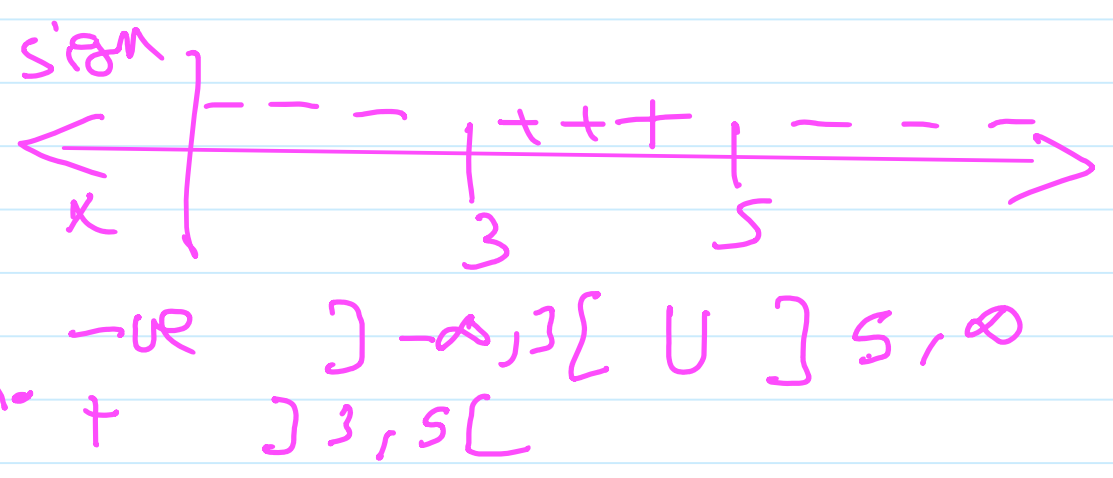 sign
- - - + + + - - -
x 3 5
-ve ]-∞,3[ U ]5,∞
+ ]3,5[